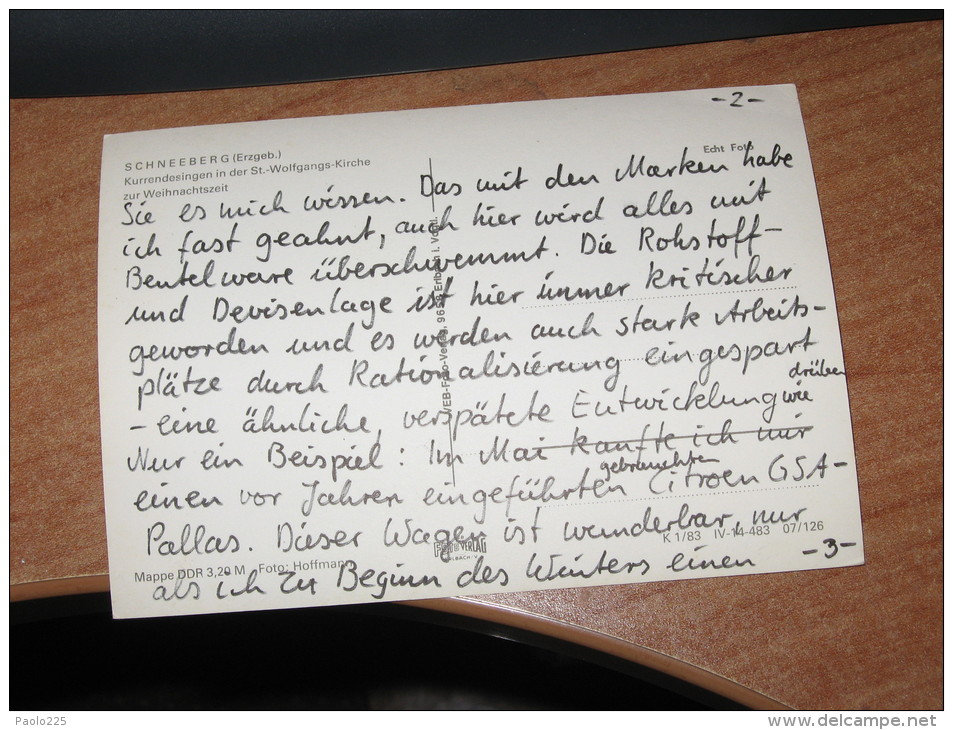 -2-
SCHNEEBERG (Erzgeb.)
Kurrendesingen in der St.-Wolfgangs-Kirche
zur Weihnachtszeit
Echt Foto
Sie es mich wissen. Das mit den Marken habe
ich fast geahnt, auch hier wird alles mit
Beutelware überschwemmt. Die Rohstoff-
und Devisenlage ist hier immer kritischer
geworden und es werden auch stark Arbeits-
plätze durch Rationalisierung eingespart
- eine ähnliche, verspätete Entwicklung wie drüben
Nur ein Beispiel: Im Mai kaufte ich mir
einen vor Jahren eingeführten gebrauchten Citroen GSA-
Pallas. Dieser Wagen ist wunderbar, nur
als ich zu Beginn des Winters einen
-3-
VEB-Foto-Verlag, 9659 Erlbach i. Vogtl.
FOTO VERLAG
ERLBACH/V.
K 1/83 IV-14-483 07/126
Mappe DDR 3,20 M Foto: Hoffmann
Paolo225
http://www.delcampe.net